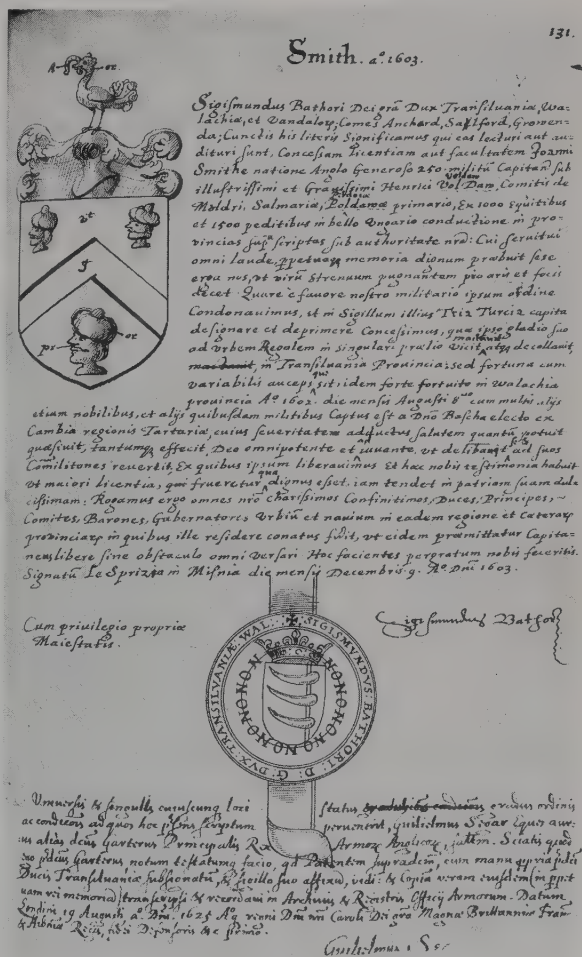 131.
Smith. aº 1603.
Sigismundus Bathori Dei grã Dux Transiluaniæ, Wa-
lachiæ, et Vandalorꝫ, Comes Anchard, Salford, Growen-
da; Cunctis his literis significamus qui eas lecturi aut au-
dituri sunt, Concessam licentiam aut facultatem Joanni
Smithe natione Anglo Generoso 250 militũ Capitañ sub
illustrissimi et Grauissimi Henrici Vol Dam, Comitis de
Moldri, Salmariæ, Poldawæ primario, Ex 1000 equitibus
et 1500 peditibus in bello Vngario conductione in pro-
uincias supª scriptas sub authoritate nrã: Cui seruitui
omni laude, ppetuaqꝫ memoria dignum præbuit sese
erga nos, vt virũ strenuum pugnantem pro aris et focis
decet. Quare è fauore nostro militario ipsum ordine
Condonauimus, et in Sigillum illius Tria Turcica capita
designare et deprimere Concessimus, quæ ipso gladio suo
ad vrbem Regalem in singulari prælio vicit, mactauit atqꝫ decollauit,
in Transiluania Prouincia: sed fortuna cum
variabilis ancepsqꝫ sit: idem forte fortuito in Walachia
prouincia Aº 1602. die mensis Augusti 8 cum multis alijs
etiam nobilibus, et alijs quibusdam militibus Captus est a Dño Bascha electo ex
Cambia regionis Tartariæ, cuius seueritate adductus salutem quantũ potuit
quæsiuit, tantumqꝫ effecit, Deo omnipotente et iuuante, vt deliberauit se et ad suos
Comilitones reuertit, Ex quibus ipsum liberauimus Et hæc nobis testimonia habuit
vt maiori licentia, qua frueretur dignus esset, iam tendet in patriam suam dul-
cissimam: Rogamus ergo omnes nrõs charissimos Confinitimos, Duces, Principes, ~
Comites, Barones, Gubernatores Vrbiũ et nauium in eadem regione et cæterarꝫ
prouinciarꝫ in quibus ille residere conatus fuit, vt eidem præmittatur Capita-
neus libere sine obstaculo omni versari Hoc facientes pergratum nobis feceritis.
Signatũ Lesprizia in Misnia die mensis Decembris 9. Aº Dñi 1603.
Cum priuilegio propriæ
Maiestatis.
Sigismundus Bathori
✠ SIGISMVNDVS: BATHORI: D: G: DVX: TRANSILVANIÆ: WAL:
Vniuersis & singulis cuiuscunqꝫ loci status gradus ordinis
ac condicõis ad quos hoc pñs scriptum peruenerit, Guilielmus Segar Eques aur-
us alias dcũs Garterus Principalis Rex Armorꝫ Anglicorꝫ, salutem. Sciatis quod
ego pdcũs Garterus notum testatumqꝫ facio, qd Patentem supradcãm, cum manu ppria pdcĩ
Ducis Transiluaniæ subsignatũ, & sigillo suo affixũ, vidi: & Copiã veram eiusdem in ppet-
uam rei memoriã transcripsi & recordaui in Archiuis & Registris Officij Armorum. Datum
Londini 19 Augusti aº Dñi 1625 Aqꝫ regni Dñi nrĩ Caroli Dei grã Magnæ Brittanniæ Franc
& Hiberniæ Regis, fidei Defensoris &c primo.
Guilielmus Se